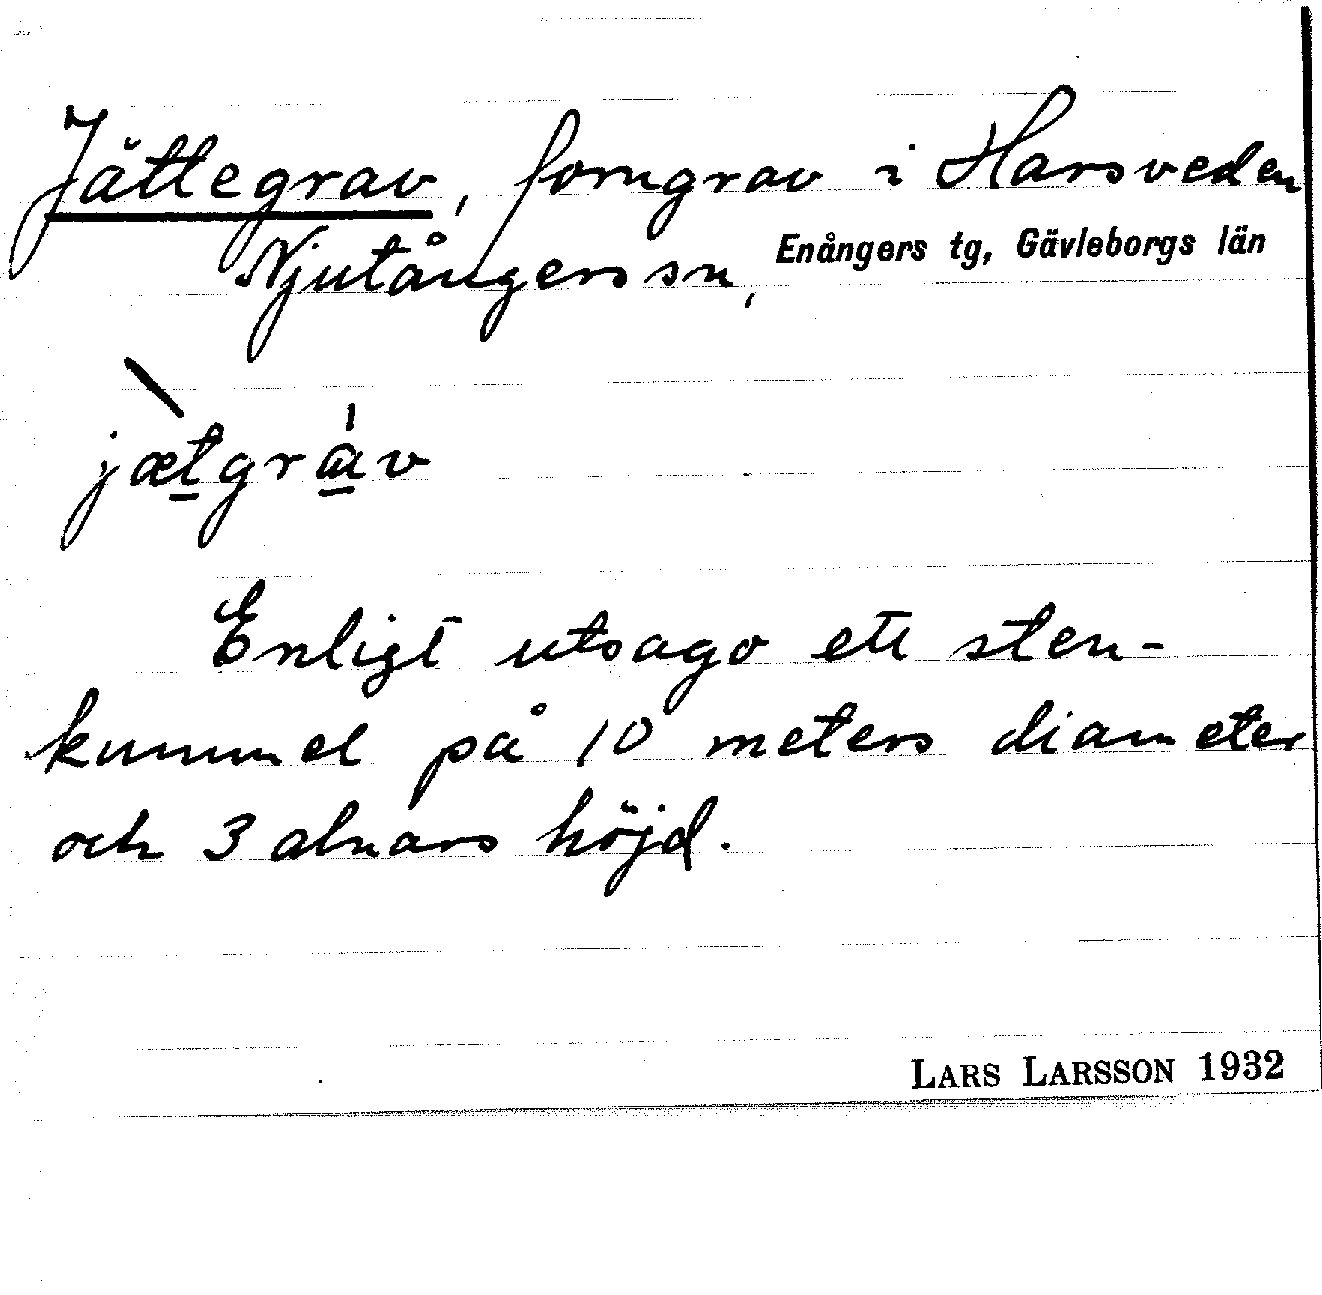 Jättegrav, forngrav i Harsveden
Njutångers sn, Enångers tg, Gävleborgs län
jætgrav
Enligt utsago ett sten-
kummel på 10 meters diameter
och 3 alnars höjd.
LARS LARSSON 1932